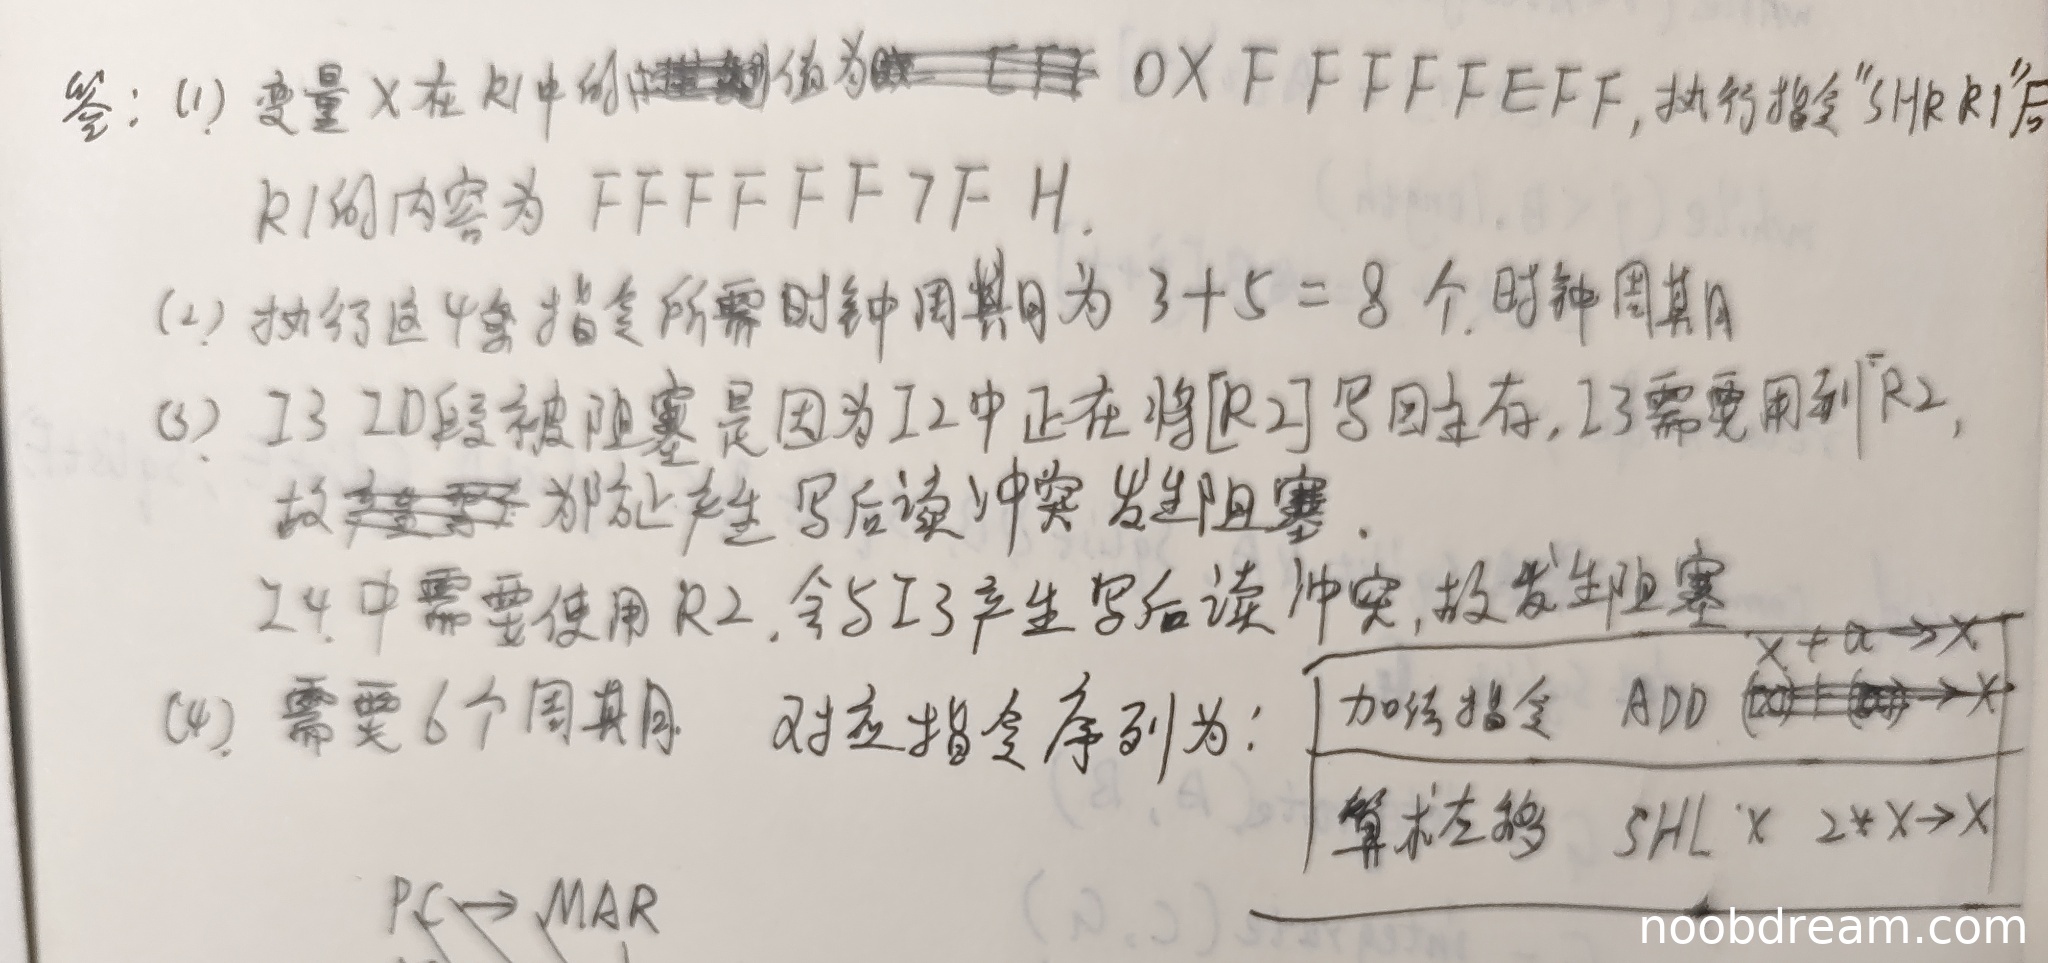 答：(1) 变量X在R1中的值为 0X F F F F F E F F, 执行指令"SHR R1"后
R1的内容为 F F F F F F 7 F H.
(2) 执行这4条指令所需时钟周期为 3+5 = 8 个时钟周期
(3) I3 ID段被阻塞是因为I2中正在将[R2]写回主存, I3需要用到R2,
故 产生写后读冲突 发生阻塞.
I4中需要使用R2, 会与I3产生写后读冲突, 故发生阻塞
(4). 需要6个周期 对应指令序列为:
x + a → X
加法指令 ADD → X
算术左移 SHL X 2*X→X
PC → MAR
noobdream.com